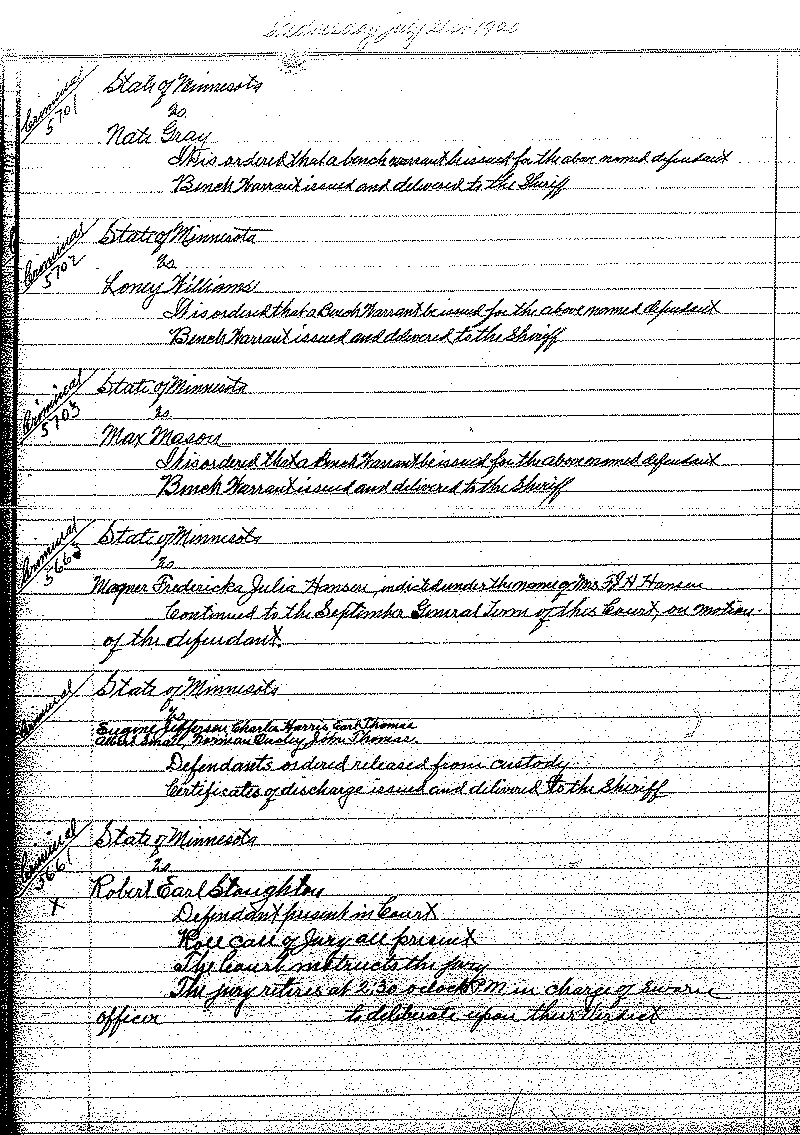 Wednesday July 21st 1920
Criminal
5701
State of Minnesota
vs.
Nate Gray
It is ordered that a bench warrant be issued for the above named defendant
Bench Warrant issued and delivered to the Sheriff
Criminal
5702
State of Minnesota
vs.
Loney Williams
It is ordered that a Bench Warrant be issued for the above named defendant
Bench Warrant issued and delivered to the Sheriff
Criminal
5703
State of Minnesota
vs.
Max Mason
It is ordered that a Bench Warrant be issued for the above named defendant
Bench Warrant issued and delivered to the Sheriff
Criminal
5663
State of Minnesota
vs.
Magner Fredericka Julia Hansen, indicted under the name of Mrs. H Hansen
Continued to the September General Term of this Court, on motion
of the defendant.
Criminal
State of Minnesota
vs.
Eugene Jefferson, Charles Harris Earl Thomas
Small, Norman John Thomas.
Defendants ordered released from custody
Certificates of discharge issued and delivered to the Sheriff
Criminal
5661
X
State of Minnesota
vs.
Robert Earl Stoughton
Defendant present in Court
Roll call of Jury all present
The Court instructs the jury
The jury retires at 2:30 oclock PM in charge of sworn
officer to deliberate upon their verdict